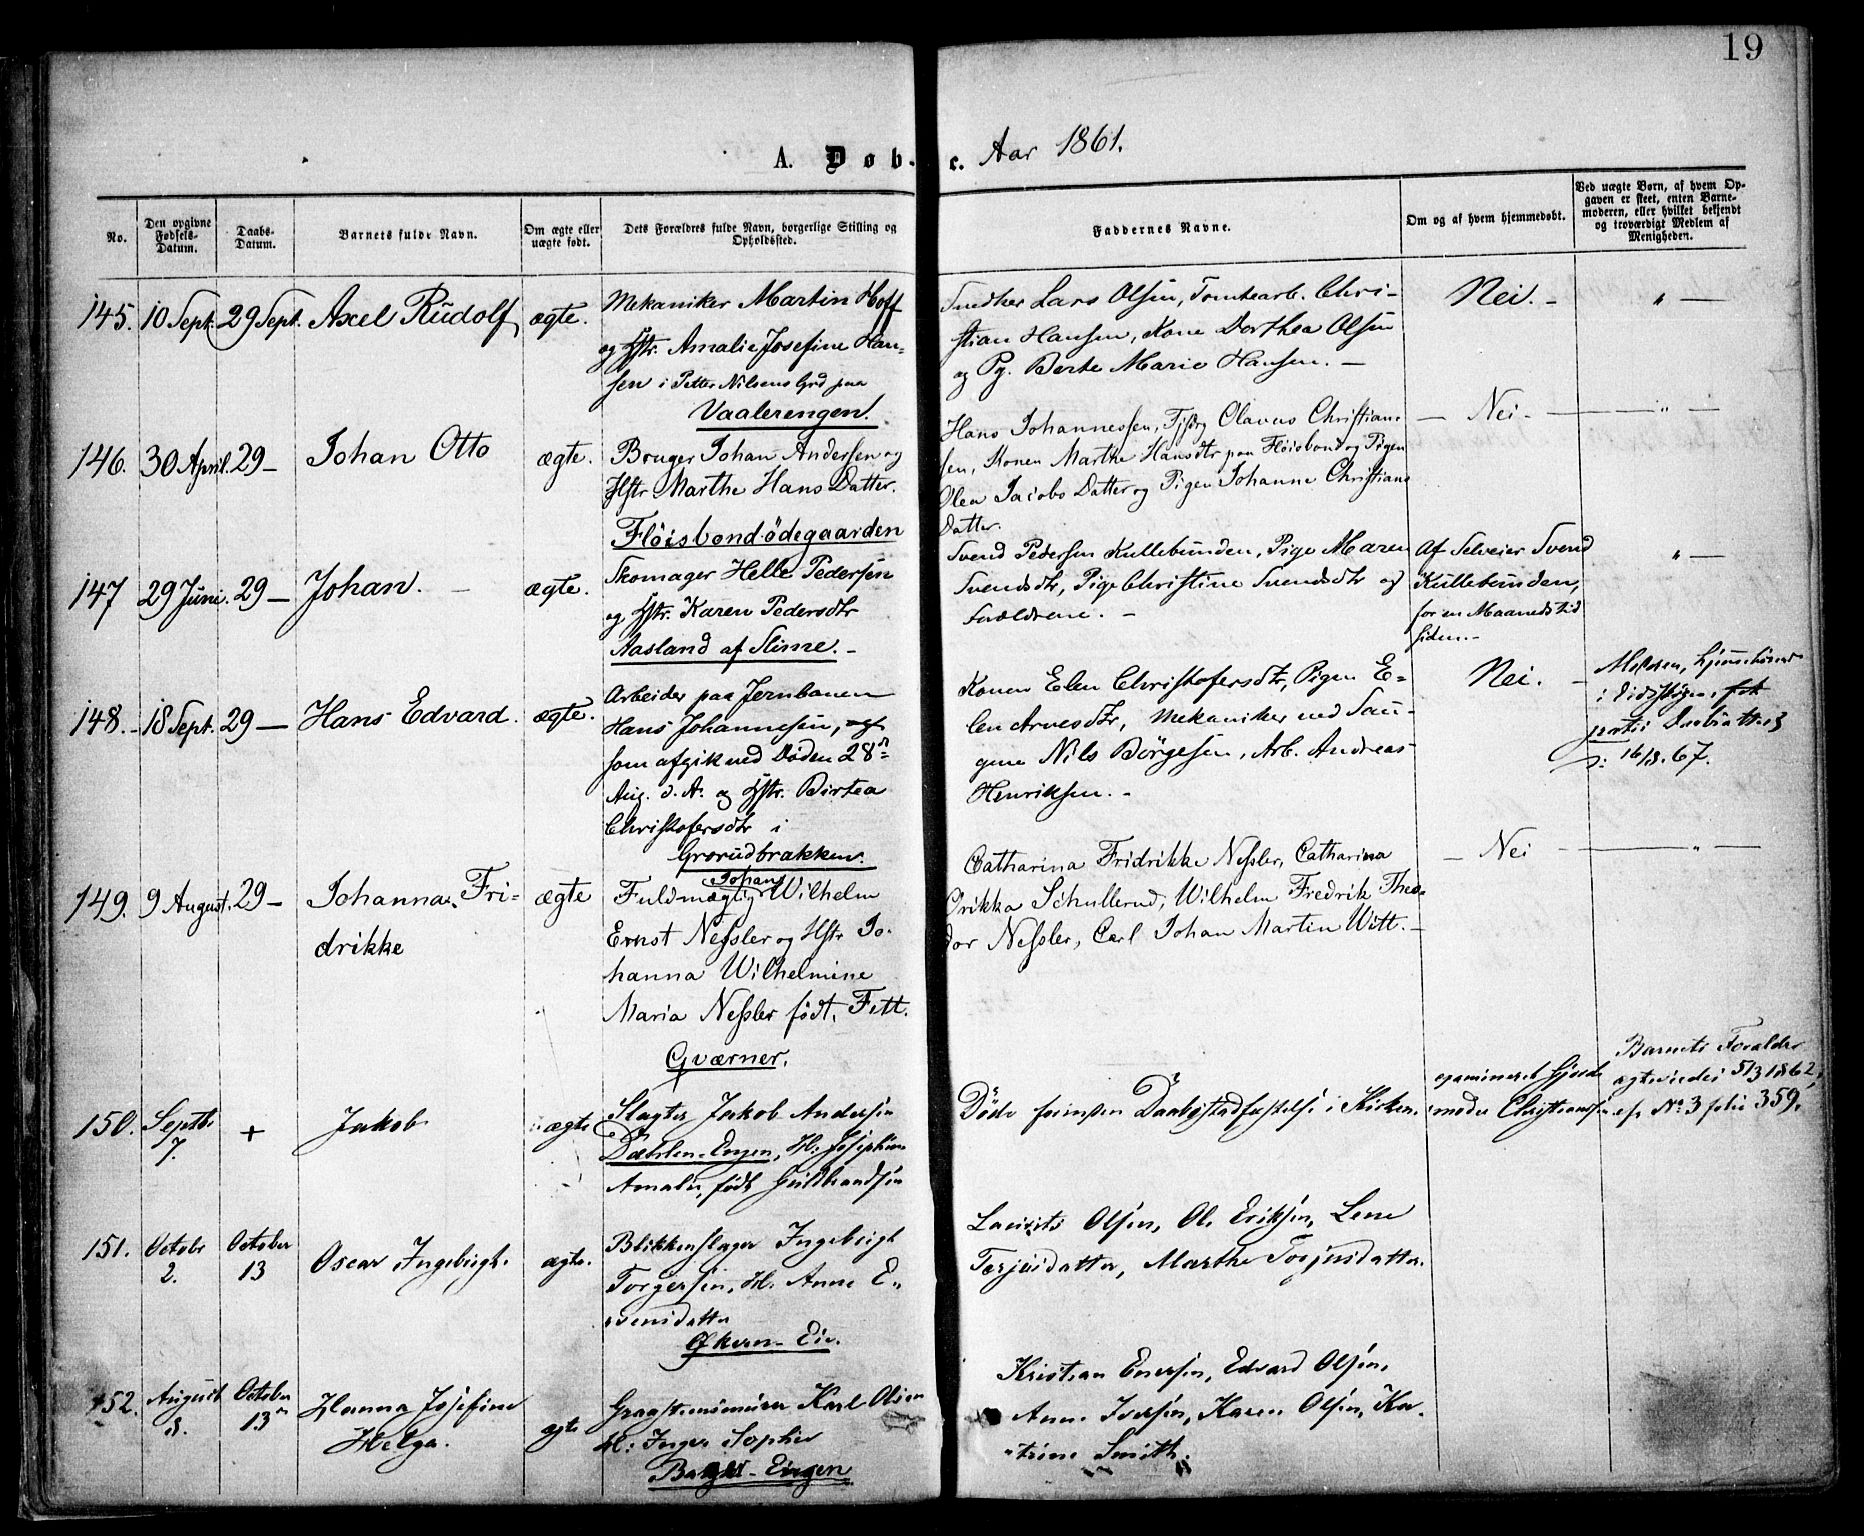 19
A. Døbte. Aar 1861.
No.
Den opgivne Fødsels-Datum.
Daabs-Datum.
Barnets fulde Navn.
Om ægte eller uægte født.
Dets Forældres fulde Navn, borgerlige Stilling og Opholdssted.
Faddernes Navne.
Om og af hvem hjemmedøbt.
Ved uægte Børn, af hvem Opgaven er skeet, enten Barnemoderen, eller hvilket bekjendt og troværdigt Medlem af Menigheden.
145. 10 Sept. 29 Sept. Axel Rudolf ægte.
Mekaniker Martin Hoff
og Hstr. Amalie Josefine Han-
sen i Petter Nilsens Grd paa
Vaalerengen.
Snedker Lars Olsen, Tomtearb. Chri-
stian Hansen, Kone Dorthea Olsen
og Pg. Berte Marie Hansen. —
Nei. — " —
146. 30 April. 29 — Johan Otto ægte.
Bruger Johan Andersen og
Hstr Marthe Hans Datter.
Flöisbond-ödegaarden
Hans Johannessen, Olavus Christian-
sen, Konen Marthe Hansdtr paa Flöisbond og Pigen
Olea Jacobs Datter og Pigen Johanne Christians
Datter.
— Nei — " —
147 29 Juni. 29 — Johan. — ægte.
Skomager Helle Pedersen
og Hstr. Karen Pedersdtr
Aasland af Slime. —
Svend Pedersen Kullebunden, Pige Maren
Svendsdtr, Pige Christine Svendsdtr og
Forældrene. —
Af Selveier Svend
Kullebunden,
for en Maanedstid
siden. —
" —
148. 18 Sept. 29 — Hans Edvard. ægte.
Arbeider paa Jernbanen
Hans Johannesen,
som afgik ved Døden 28de
Aug. d. A. og Hstr. Birtea
Christofersdtr i
Grorudbrakken.
Konen Elen Christofersdtr, Pigen E-
len Arnesdtr, Mekaniker ved Sau-
gene Nils Börgesen, Arb. Andreas
Henriksen. —
Nei. —
Moderen,
i fik
Daabsattest
16/8. 67.
149. 9 August. 29 — Johanna Fri-
drikke ægte
Fuldmægtig Johan Wilhelm
Ernst Nessler og Hstr Jo-
hanna Wilhelmine
Maria Nessler födt, Fett.
Qværner.
Catharina Fridrikke Nessler, Catharina
Drikka Schullerud, Wilhelm Fredrik Theo-
dor Nessler, Carl Johan Martin Witt. —
— Nei — " —
150. Septbr 7. + Jakob ægte
Slagter Jakob Andersen
Dæhlen-Engen, H: Josephine
Amalie, født Guldbrandsen
Døde forinden Daabsstadfæstelse i Kirken.
examineret Gjorde-
moder Christiansen
Barnets Forældre
ægteviedes 5/3 1862,
cfr No 3 folio 359.
151. Octobr 2. October 13 Oscar Ingebrigt. ægte.
Blikkenslager Ingebrigt
Torgersen, H. Anne E-
vensdatter
Økern-Eie.
Laurits Olsen, Ole Eriksen, Lene
Terjusdatter, Marthe Torjusdatter.
152. August 8. October 13 Hanna Josefine
Helga. ægte
Graastensmurer Karl Olsen
H: Inger Sophie
Engen
Kristian Enersen, Edvard Olsen,
Anne Iversen, Karen Olsen, Ka-
trine Smith.